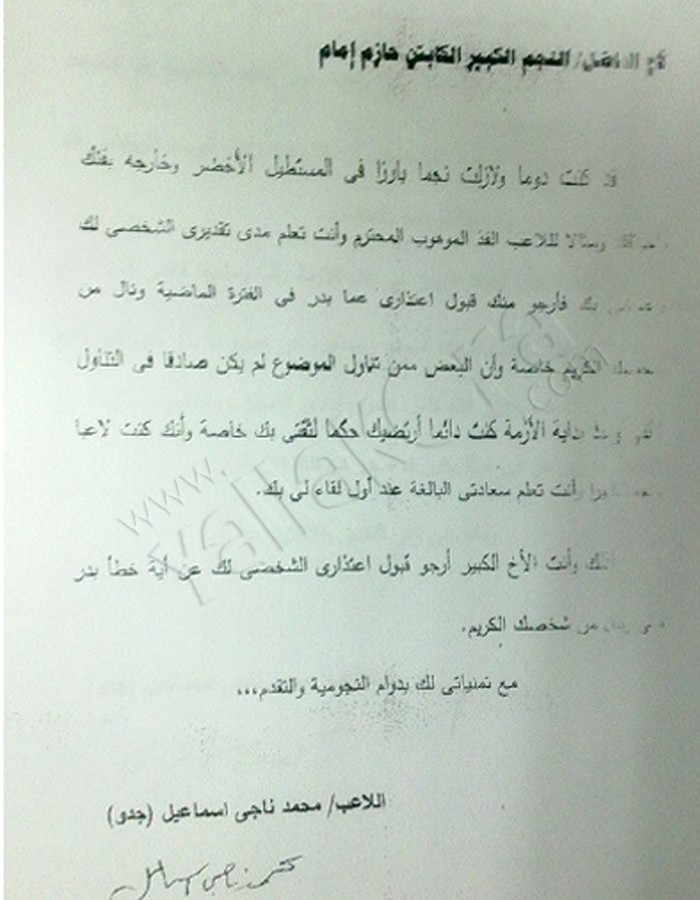 النجم الكبير الكابتن حازم إمام
كنت دوما ولازلت نجما بارزا فى المستطيل الأخضر وخارجه بفنك
للاعب الفذ الموهوب المحترم وأنت تعلم مدى تقديرى الشخصى لك
بك فأرجو منك قبول اعتذارى عما بدر فى الفترة الماضية ونال من
الكريم خاصة وأن البعض ممن تناول الموضوع لم يكن صادقا فى التناول
بداية الأزمة كنت دائما أرتضيك حكما لثقتى بك خاصة وأنك كنت لاعبا
وأنت تعلم سعادتى البالغة عند أول لقاء لى بك.
وأنت الأخ الكبير أرجو قبول اعتذارى الشخصى لك عن أية خطأ بدر
من شخصك الكريم.
مع تمنياتى لك بدوام النجومية والتقدم،،،
اللاعب/ محمد ناجى اسماعيل (جدو)
محمد ناجى اسماعيل
www.yallakora.com